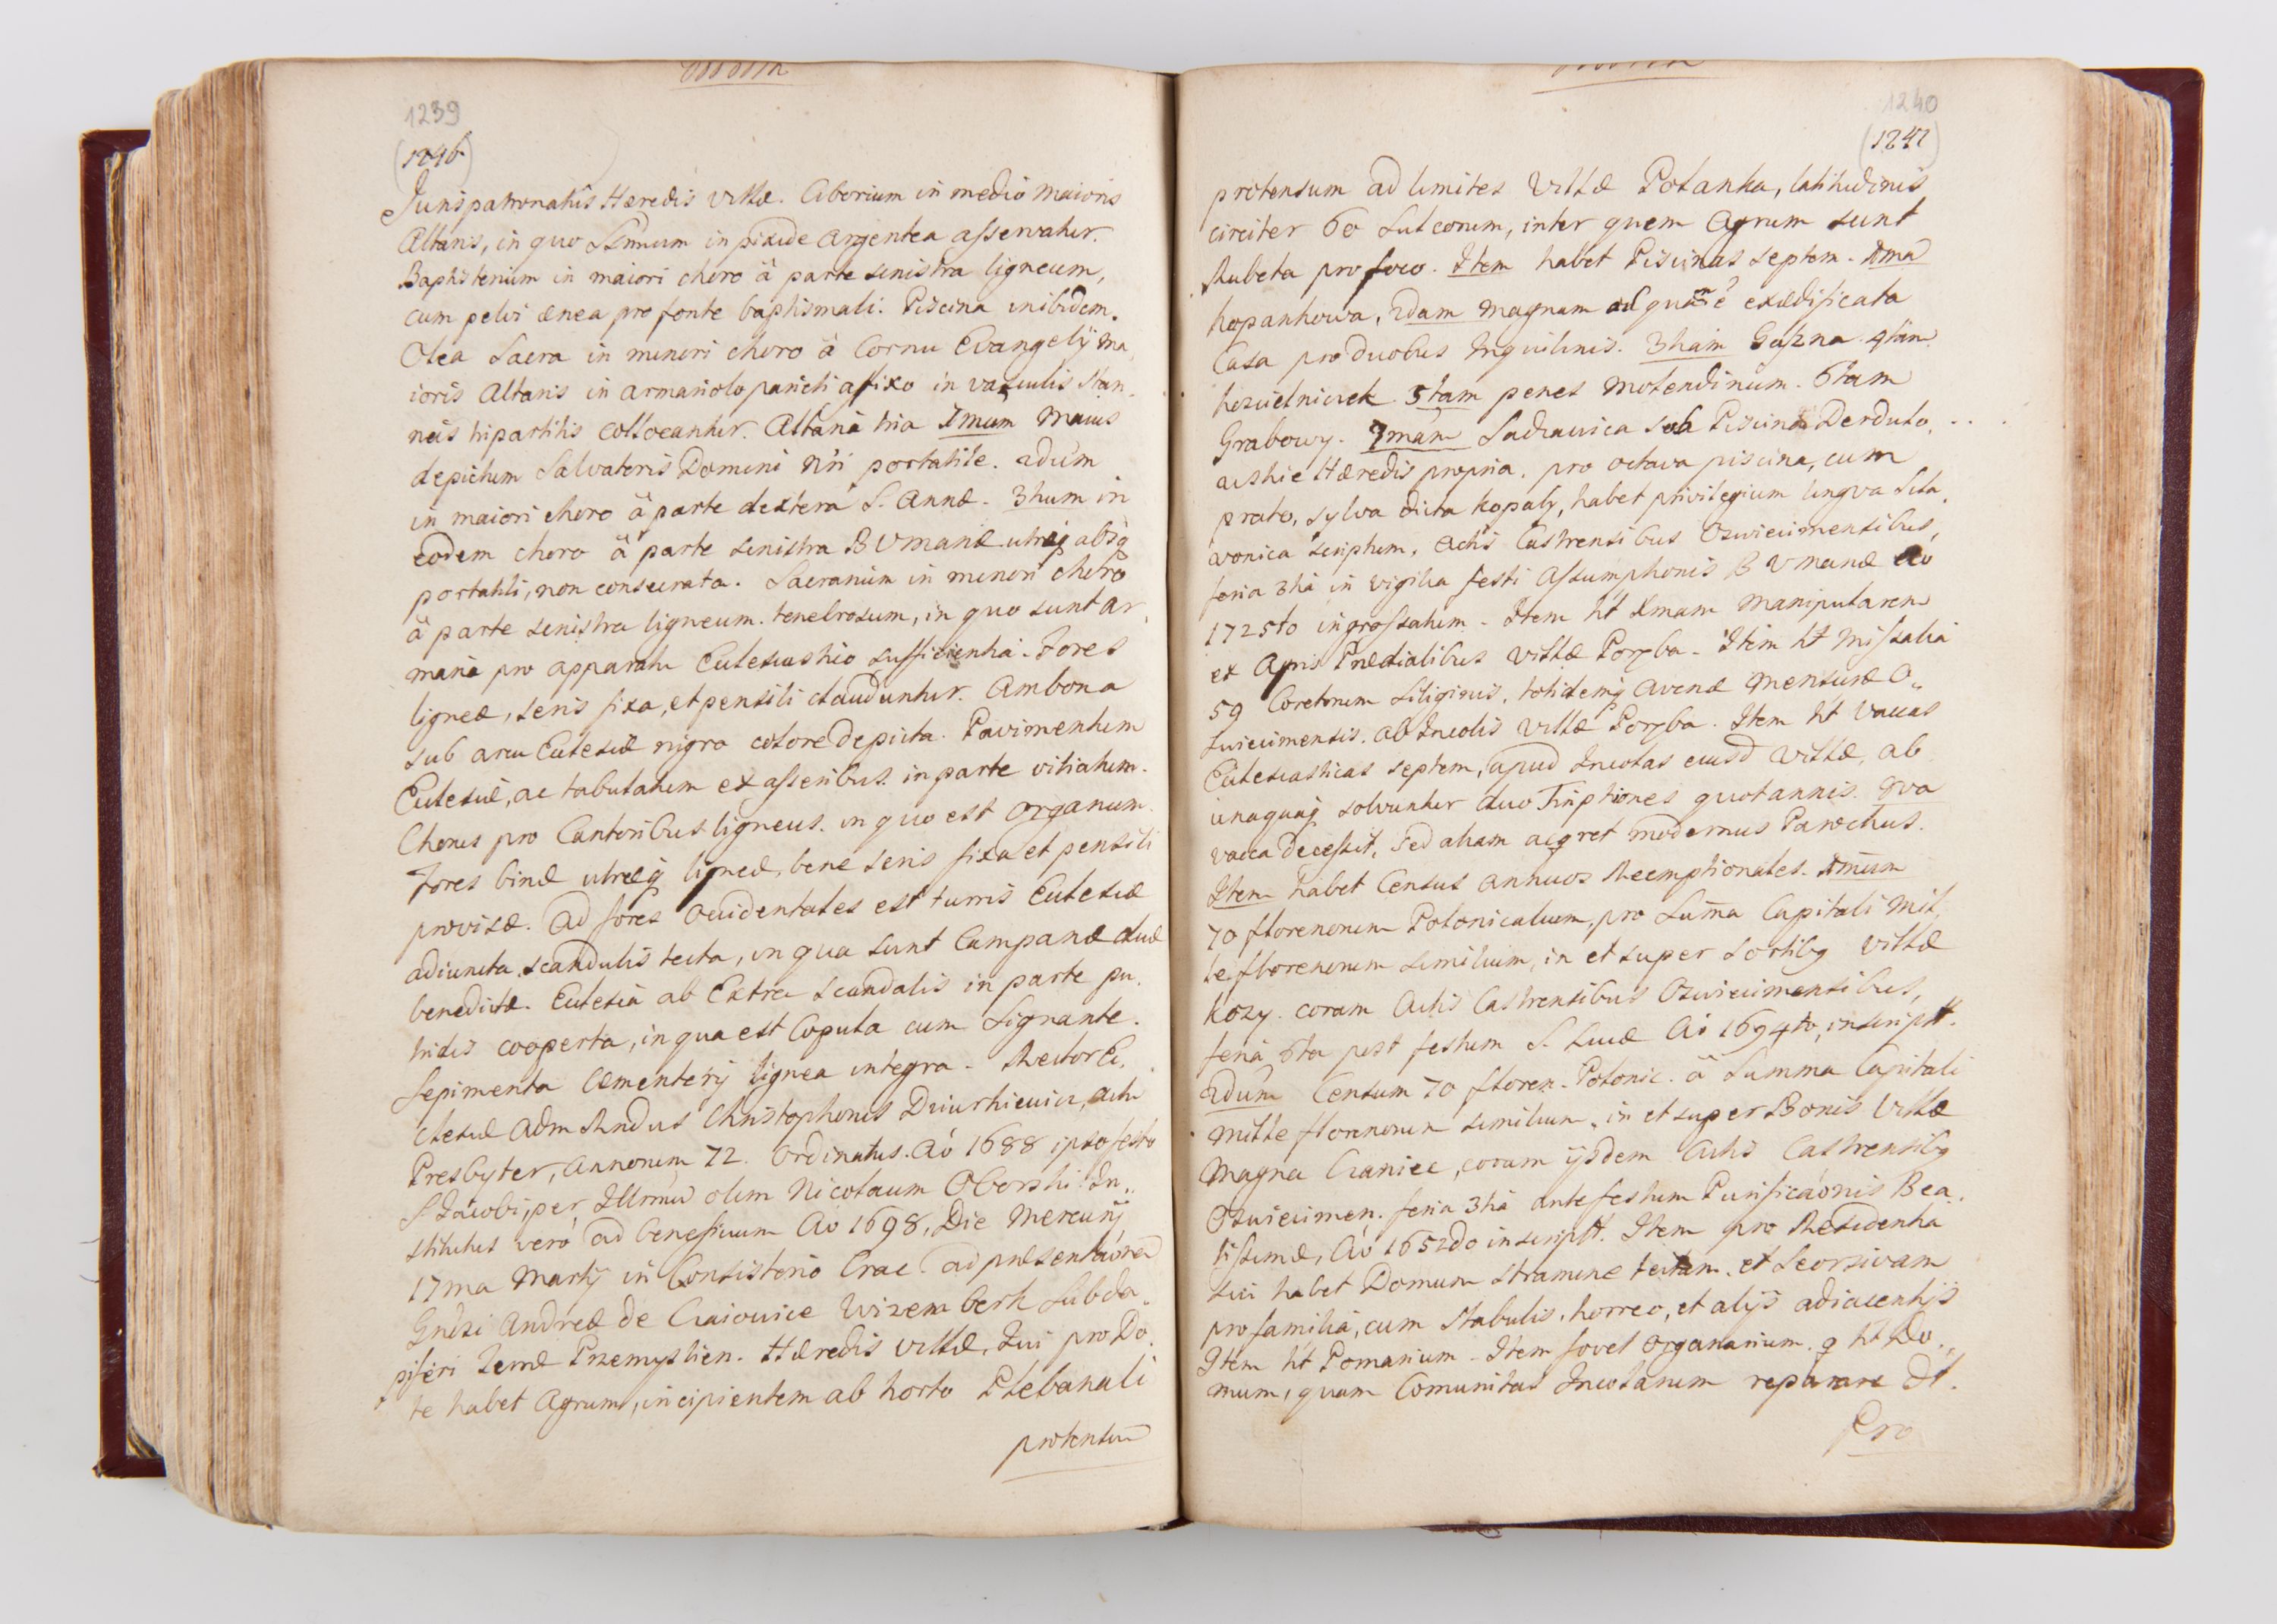 1239
(1246)
Jurispatronatus Hæredis Villæ. Ciborium in medio Maioris
Altaris, in quo SSmum in pixide argentea asservatur.
Baptisterium in maiori choro à parte sinistra ligneum,
cum pelvi ænea pro fonte baptismali. Piscina inibidem.
Olea Sacra in minori choro à Cornu Evangelÿ Ma
ioris Altaris in armariolo parieti affixo in vasculis stan
neis tripartitis collocantur. Altaria tria 1mum Maius
depictum Salvatoris Domini Nri portatile. 2dum
in maiori choro à parte dextera S. Annæ. 3tium in
eodem choro à parte sinistra B V Mariæ utrūq absq
portatili, non consecrata. Sacrarium in minori choro
à parte sinistra ligneum. tenebrosum, in quo sunt ar
maria pro apparatu Ecclesiastico sufficientia. Fores
ligneæ, seris fixa, et pensili clauduntur. Ambona
sub arcu Ecclesiæ nigro colore depicta. Pavimentum
Ecclesiæ, ac tabulatum ex asseribus. in parte vitiatum.
Chorus pro Cantoribus ligneus. in quo est Organum.
Fores binæ utræq ligneæ, bene seris fixa et pensili
provisæ. Ad fores Occidentales est turris Ecclesiæ
adiuncta scandulis tecta, in qua sunt Campanæ duæ
benedictæ. Ecclesia ab Extra scandalis in parte pu
tridis cooperta, in qua est Copula cum Signante.
Sepimenta Cæmenterÿ lignea integra. Rector Ec
clesiæ Adm Rndus Christophorus Dziurkiewicz, actu
Presbyter, Annorum 72. Ordinatus. Aō 1688 ipso festo
S. Jacobi, per Illrmū olim Nicolaum Oborski. In
stitutus verò ad beneficium Aō 1698, Die Mercurÿ
17ma Martÿ in Consistorio Crac. ad præsentāōnem
Gnēsi Andreæ de Craiowice Wizemberk Subda
piferi Zemæ Przemyslien. Hæredis Villæ, Qui pro Do
te habet Agrum, incipientem ab horto Plebanali
protensum
1240
(1247)
protensum ad limites Villæ Polanka, latitudinis
circiter 60 Sulcorum, inter quem Agrum sunt
Rubeta pro foco. Item habet Piscinas septem. 1ma
Kopankowa, 2dam magnam ad quam ē exædificata
Casa pro duobus Inquilinis. 3tiam 4tam
5tam penes Molendinum. 6tam
Grabowy. 7mam Sadzawica sub Piscina
Hæredis propria. pro octava piscina, cum
prato, sylva dicta Kopaly, habet privilegium lingva Sla
vonica scriptum, Actis Castrensibus Oswiecimensibus,
feria 3tia in vigilia festi Assumptionis B V Mariæ Aō
1725to ingrossatum. Item ht Xmam Manipularem
ex Agris Prædialibus Villæ Poręba. Item ht Missalia
59 Coretorum Siliginis, totidemq Avenæ Mensuræ O
swiecimensis. ab Incolis Villæ Poręba. Item ht Vaccas
Ecclesiasticas septem, apud Incolas eiusd Villæ, ab
unaquaq solvuntur duo Timphones quotannis. 8va
vacca decessit, sed aliam modernus Parochus.
Item habet Census annuos Reemptionales. 1mum
70 florenorum Polonicalium, pro Summa Capitali Mil
le florenorum similium, in et super Sortibq Villæ
Kozy. coram Actis Castrensibus Oswiecimensibus,
feria 6ta post festum S. Lucæ Aō 1694to, inscriptt.
2dum Censum 70 floren. Polonic. à Summa Capitali
mille florenorum similium, in et super Bonis Villæ
Magna Craniec, coram ijsdem Actis Castrensibq
Oswiecimen. feria 3tia ante festum Purificaōnis Bea
tissimæ, Aō 1652do inscriptt. Item pro Residentia
sui habet Domum stramine tectam, et Seorsivam
pro familia, cum stabulis, horreo, et alÿs adiacentÿs
Item ht Pomarium. Item fovet Organarium. q ht Do
mum, quam Comunitas Incolarum reparare dt.
Pro